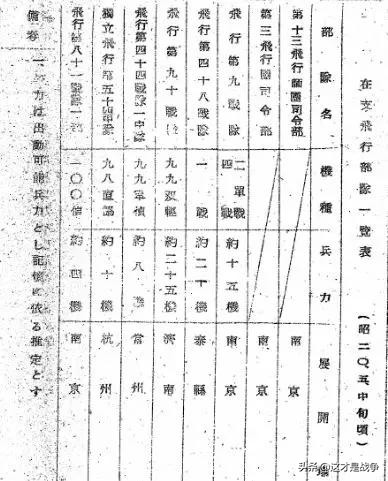 在支飛行部隊一覽表 (昭二〇、五中旬頃)
部隊名 機種 兵力 展開場
第十三飛行師團司令部 南京
第三飛行團司令部 南京
飛行第九戰隊 二單戰 四戰 約十五機 南京
飛行第四十八戰隊 一戰 約二十機 泰縣
飛行第九十戰隊 九九双輕 約二十五機 濟南
飛行第四十四戰隊一中隊 九九軍偵 約八機 常州
獨立飛行第五十四中隊 九八直協 約十機 杭州
飛行第八十一戰隊一部 一〇〇偵 約四機 南京
備考 一、兵力は出動可能兵力とし記憶に依る推定とす
头条 @这才是战争